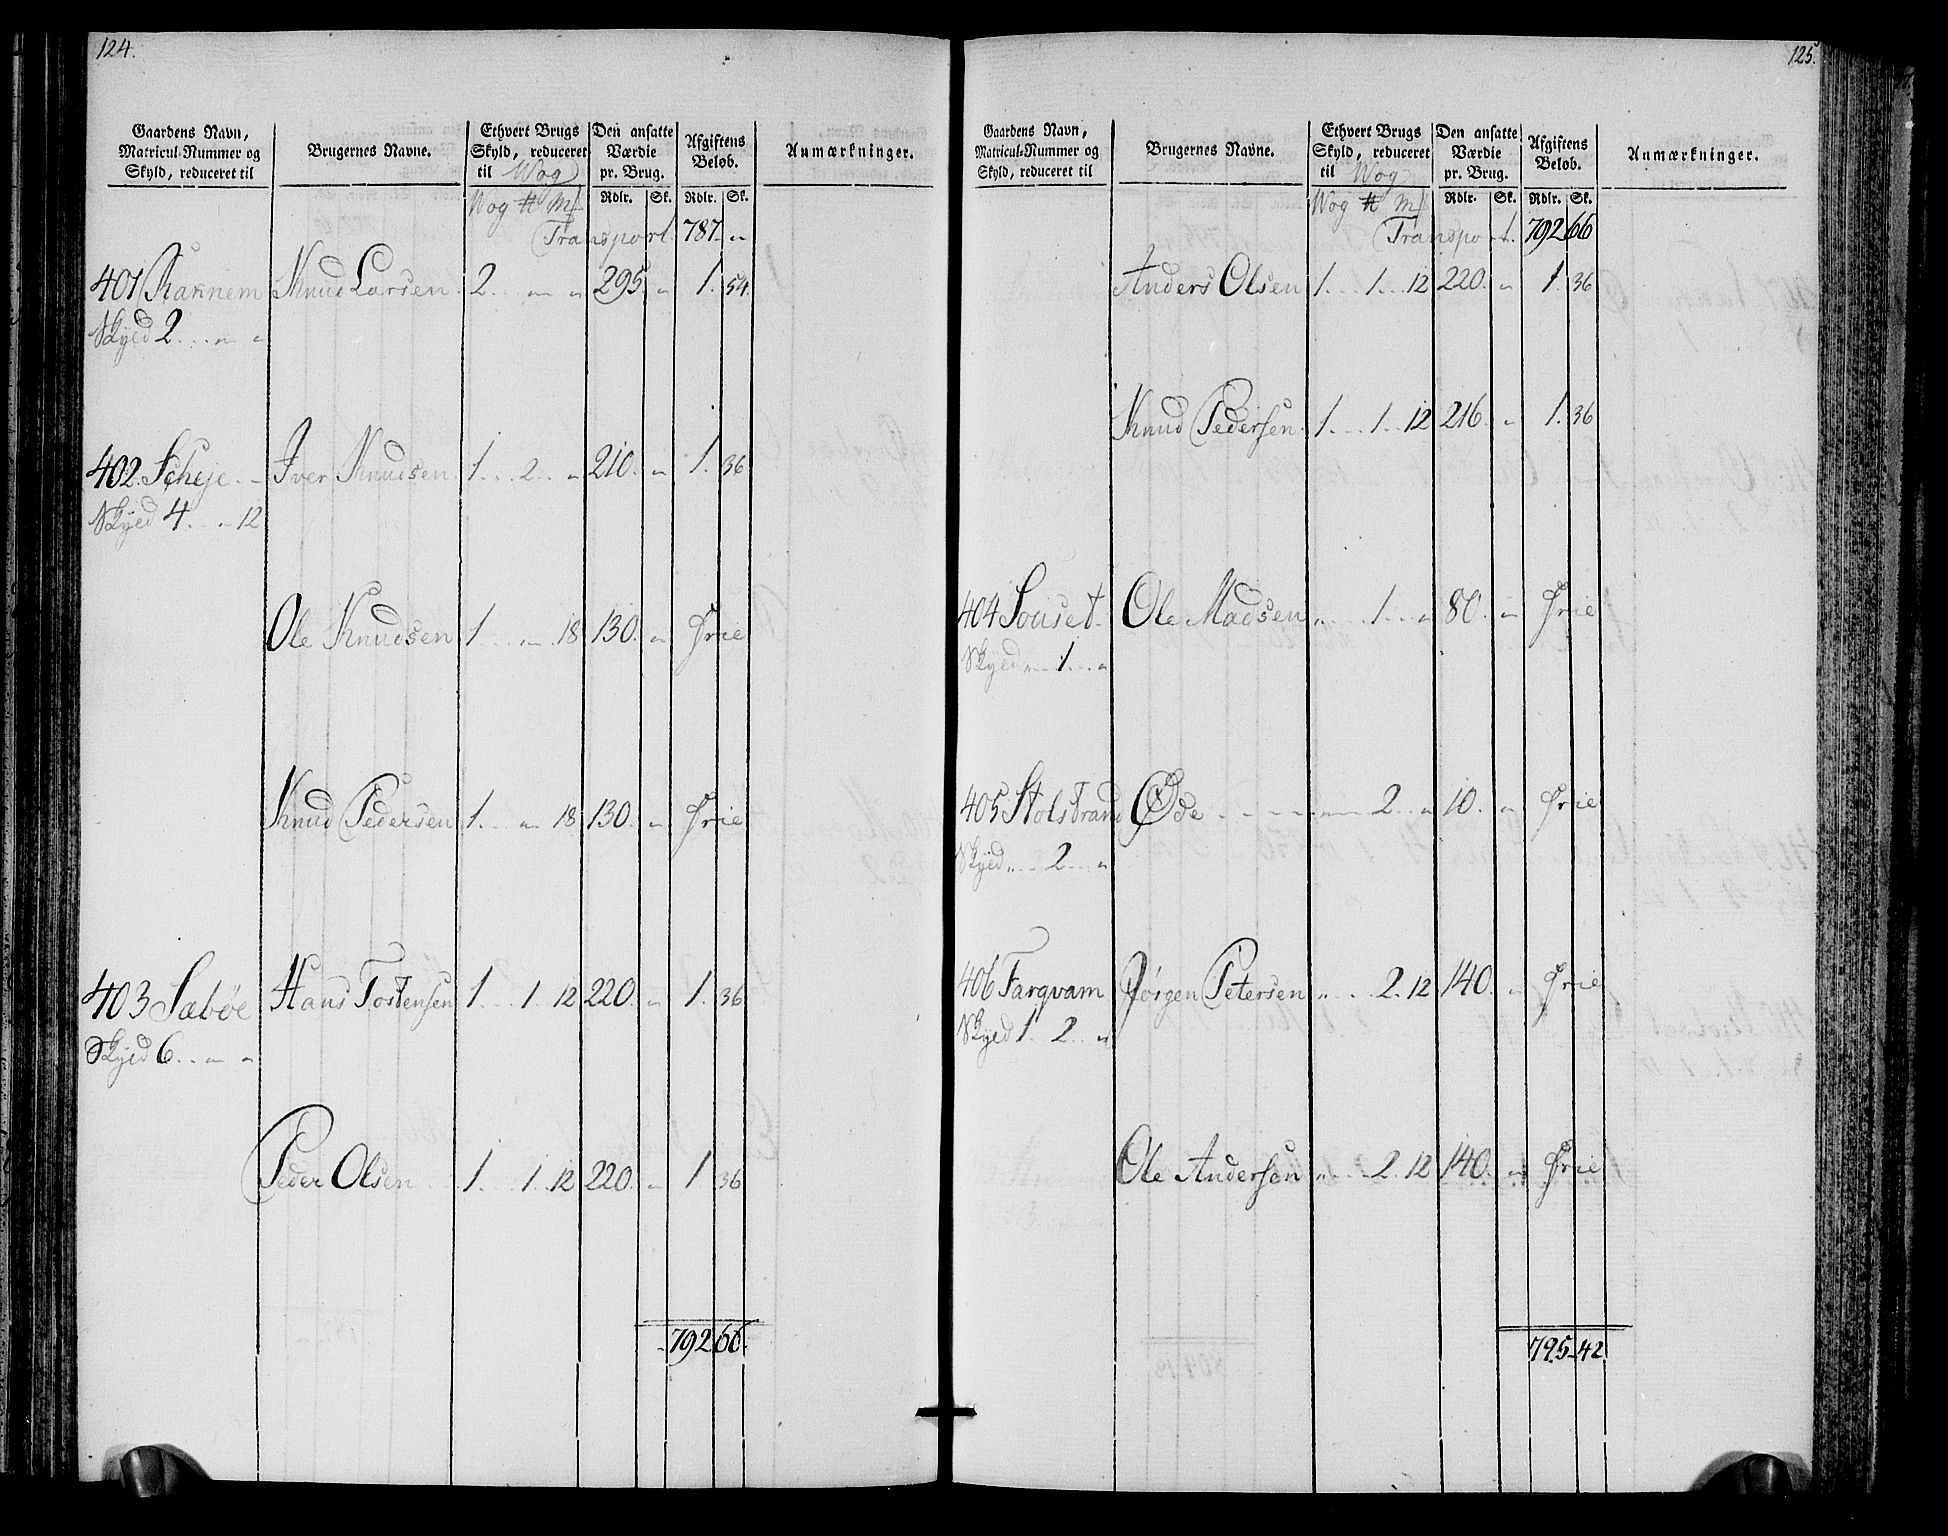 124.
Gaardens Navn, Matricul-Nummer og Skyld, reduceret til | Brugernes Navne. | Ethvert Brugs Skyld, reduceret til Wog | Den ansatte Værdie pr. Brug. | Afgiftens Beløb. | Anmærkninger.
Wog ℔ Mk | Rdlr. Sk. | Rdlr. Sk.
Transport. 787. "
401 Raknem Knud Larsen. 2 . . " " 295. " 1. 54.
Skyld 2 . . . " "
402 Scheje . . Iver Knudsen 1 . . 2 . . " 210. " 1. 36
Skyld 4 . . . 12
Ole Knudsen 1 . . . " 18 130. " Frie
Knud Pedersen 1 . . " 18 130. " Frie
403 Sæbøe Hans Tostensen 1 . . 1. 12 220. " 1. 36
Skyld 6 . . " "
Peder Olsen . . 1 . . 1. 12 220. " 1 36
792 66.
125.
Gaardens Navn, Matricul-Nummer og Skyld, reduceret til | Brugernes Navne. | Ethvert Brugs Skyld, reduceret til Wog | Den ansatte Værdie pr. Brug. | Afgiftens Beløb. | Anmærkninger.
Wog ℔ Mk | Rdlr. Sk. | Rdlr. Sk.
Transport. 792 66
Anders Olsen 1 . . . 1 . . 12 220. " 1. 36
Knud Pedersen. 1 . . . 1 . . 12 216. " 1. 36
404 Souset. Ole Madsen " . . 1 . . " 80. " Frie
Skyld " . . 1 . . "
405 Stolstrand Øde . . . . " 2 . . " 10. " Frie
Skyld " . . 2 . . "
406 Farqvam Jørgen Petersen " . . . 2. 12 140. " Frie
Skyld 1. 2 . . "
Ole Andersen " . . . 2. 12 140. " Frie
795 42